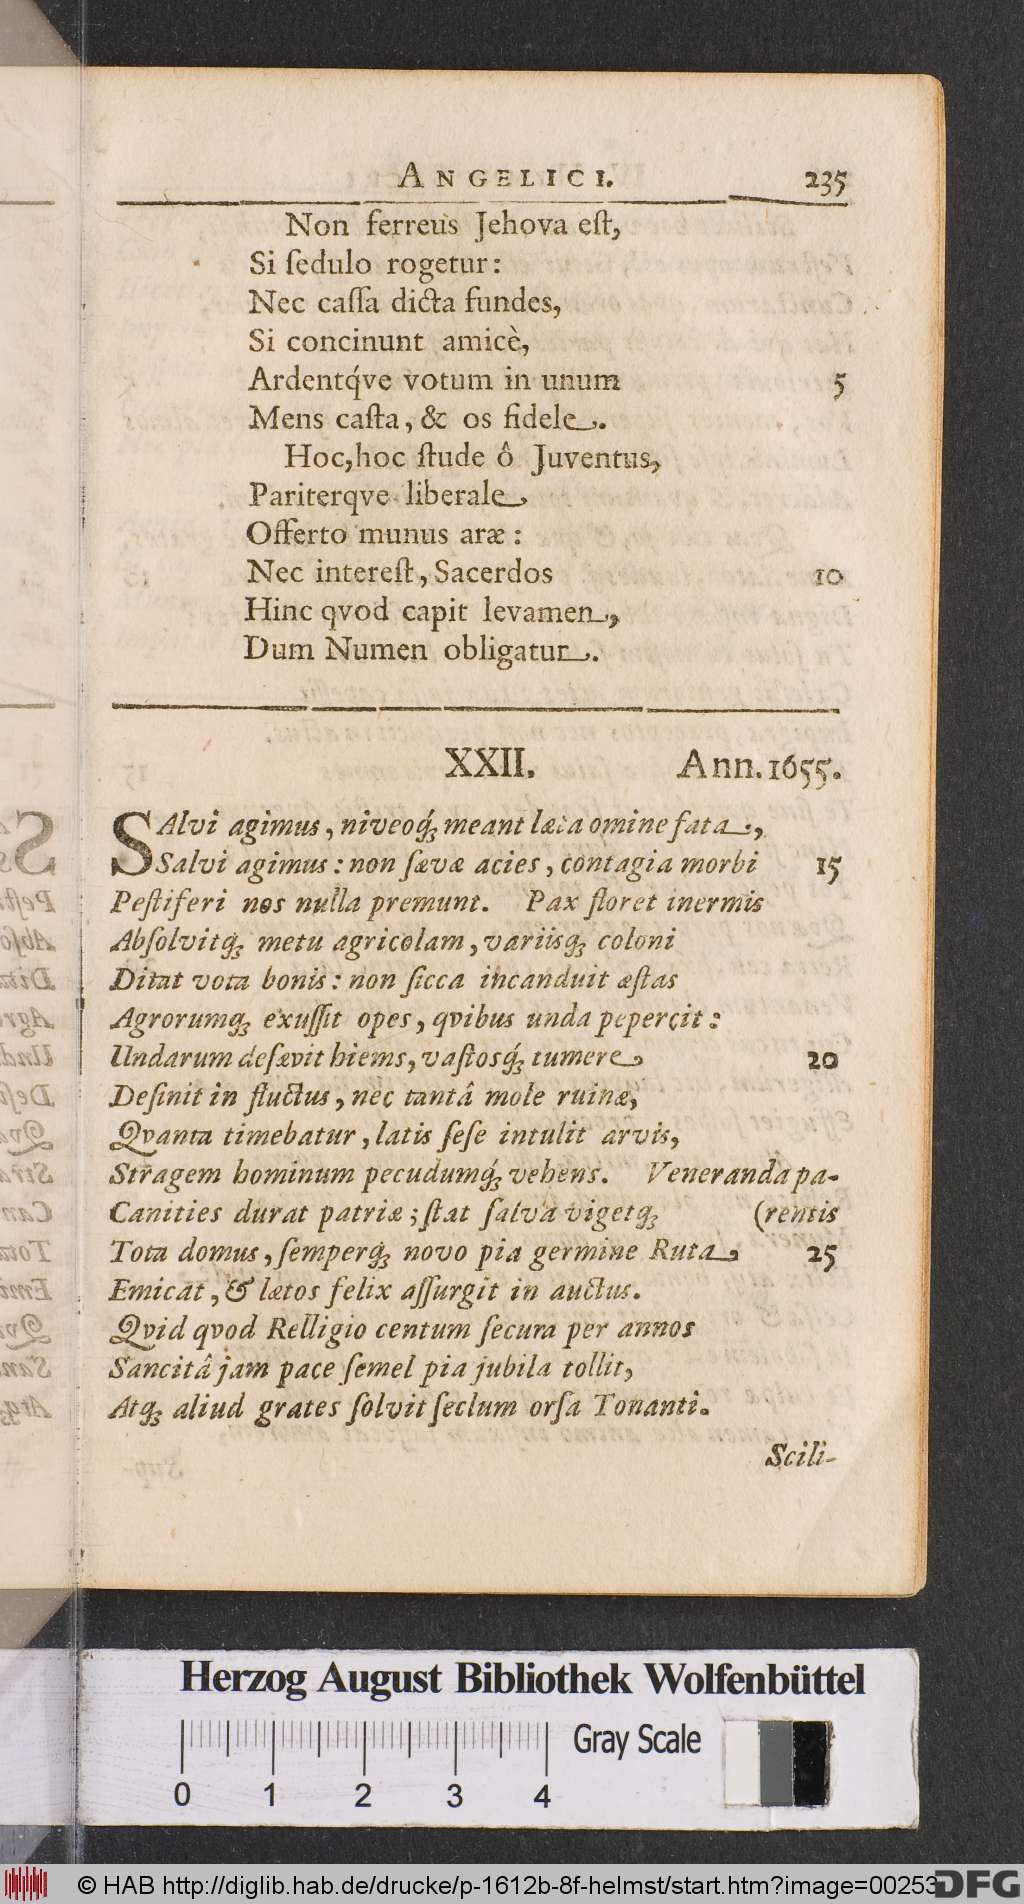 ANGELICI. 235
Non ferreus Jehova eſt,
Si ſedulo rogetur:
Nec caſſa dicta fundes,
Si concinunt amicè,
Ardentq́ve votum in unum 5
Mens caſta, & os fidele.
Hoc, hoc ſtude ô Juventus,
Pariterqve liberale
Offerto munus aræ:
Nec intereſt, Sacerdos 10
Hinc qvod capit levamen,
Dum Numen obligatur.
XXII. Ann. 1655.
SAlvi agimus, niveoq́; meant læta omine fata,
Salvi agimus: non ſævæ acies, contagia morbi 15
Peſtiferi nos nulla premunt. Pax floret inermis
Abſolvitq́; metu agricolam, variisq́; coloni
Ditat vota bonis: non ſicca incanduit æſtas
Agrorumq́; exuſſit opes, qvibus unda pepercit:
Undarum deſævit hiems, vaſtosq́; tumere 20
Deſinit in fluctus, nec tantâ mole ruinæ,
Qvanta timebatur, latis ſeſe intulit arvis,
Stragem hominum pecudumq́; vehens. Veneranda pa-
Canities durat patriæ; ſtat ſalva vigetq́; (rentis
Tota domus, ſemperq́; novo pia germine Ruta 25
Emicat, & lætos felix aſſurgit in auctus.
Qvid qvod Relligio centum ſecura per annos
Sancitâ jam pace ſemel pia jubila tollit,
Atq́; aliud grates ſolvit ſeclum orſa Tonanti.
Scili-
Herzog August Bibliothek Wolfenbüttel
Gray Scale
0 1 2 3 4
© HAB http://diglib.hab.de/drucke/p-1612b-8f-helmst/start.htm?image=00253
DFG